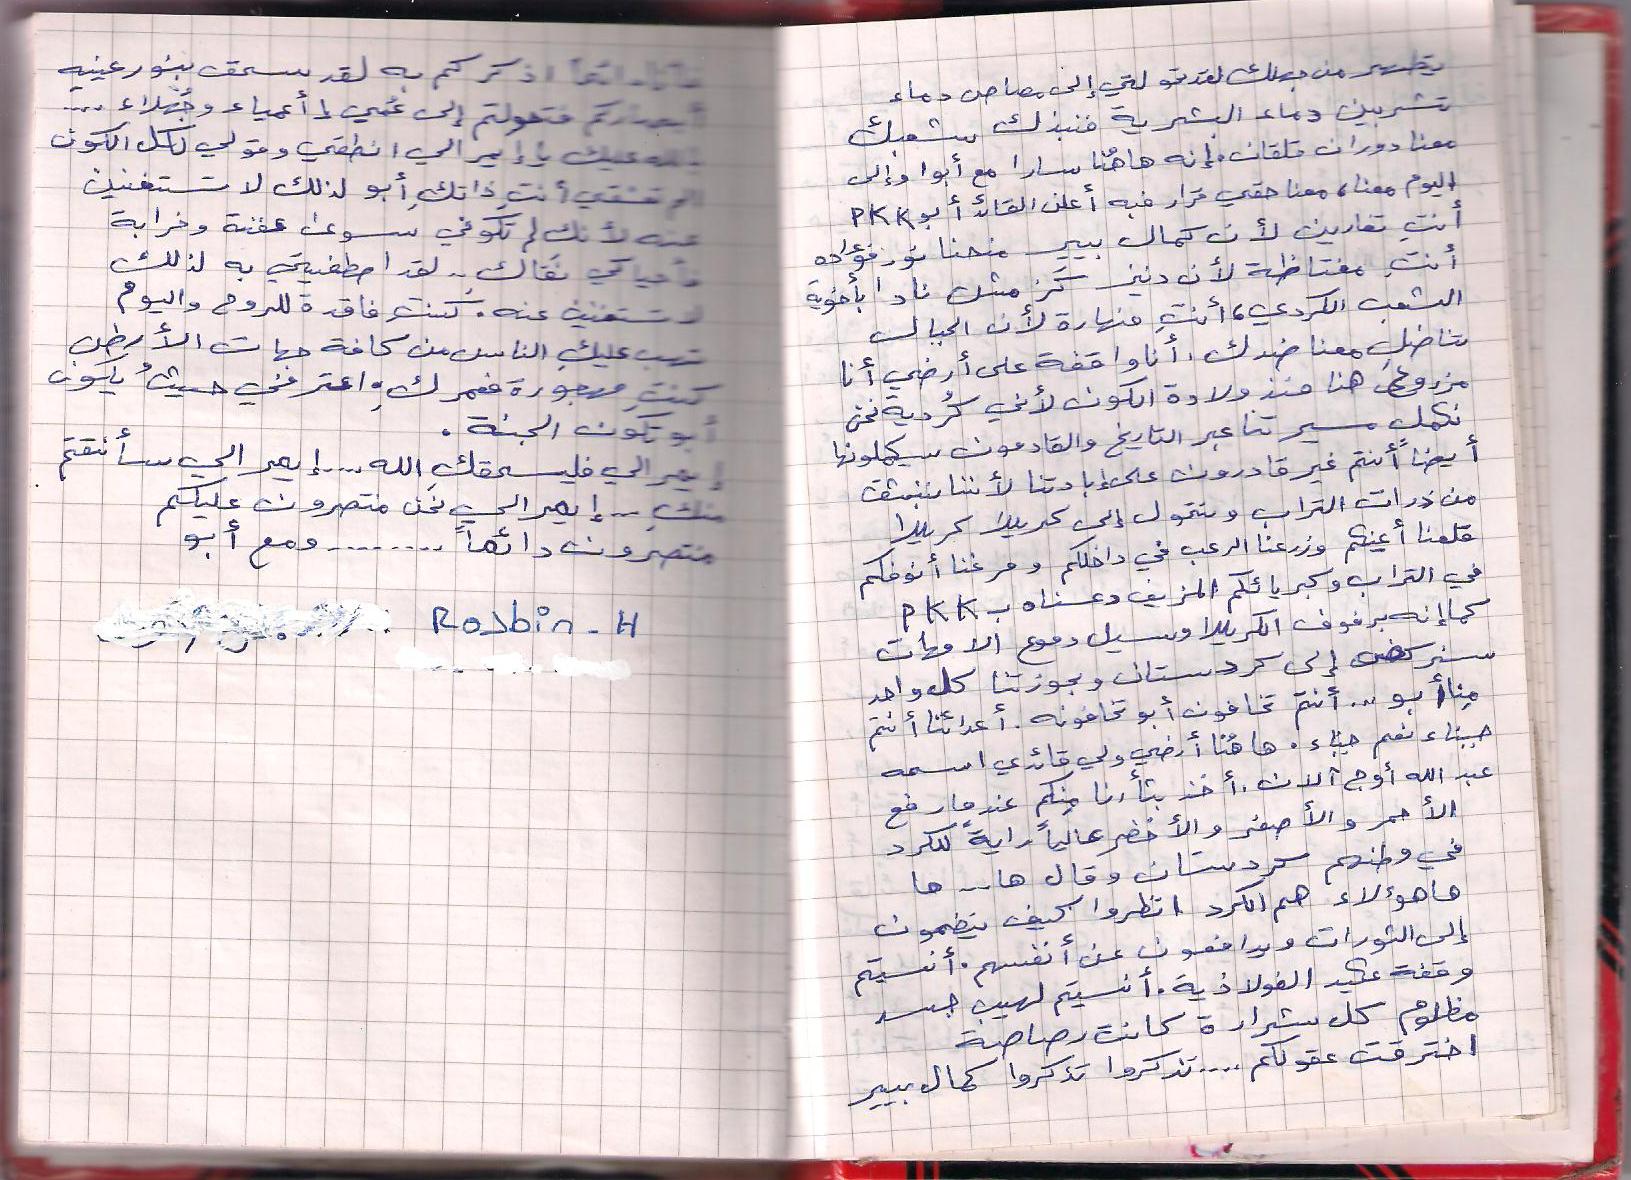 يظهر من جهلك لقد تحولتي إلى مصاص دماء
تشربين دماء البشرية فنبذك شعبك
معنا دوران قلقان. إنه هاهُنا سارا مع أبوا وإلى
اليوم معنا، معنا حقي قرار فيه أعلن القائد أبو PKK
أنتِ تغارين لأن كمال بيير منحنا نور فؤاده
أنتِ مغتاظة لأن دنيز گزمش نادا بأخوية
الشعب الكردي، أنتِ منهارة لأن الجبال
تناضل معنا ضدك، أنا واقفة على أرضي أنا
مزروعة هنا منذ ولادة الكون لأني كُردية نحن
نكمل مسيرتنا عبر التاريخ والقادمون سيكملونها
أيضاً أنتم غير قادرون على إبادتنا لأننا ننبثق
من ذرات التراب ونتحول إلى كريلا كريلا
قلعنا أعينكم وزرعنا الرعب في داخلكم ومرغنا أنوفكم
في التراب وكبريائكم المزيف دعسناه بـ PKK
كما إنه برفوف الكريلا وسيل دموع الامهات
سنركض إلى كردستان وبحوزتنا كل واحد
مِنا أبو... أنتم تخافون أبو تخافونه. أعدائنا أنتم
جبناء نعم جبناء. هاهُنا أرضي ولي قائدي اسمه
عبد الله أوج آلان. أخذ بثأرنا مِنكم عندما رفع
الأحمر والأصفر والأخضر عالياً راية للكرد
في وطنهم كردستان وقال ها... ها
هاهؤلاء هم الكرد انظروا كيف ينضمون
إلى الثورات ويدافعون عن أنفسهم. أنسيتم
وقفة عگيد الفولاذية. أنسيتم لهيب جسد
مظلوم كل شرارة كانت رصاصة
اخترقت عقولكم.... تذكروا تذكروا كمال بيير
اذكركم به لقد سحق بنور عينيه
أبصاركم فتحولتم إلى عُمي لا أعمياء وجُهلاء....
بالله عليك يا إمبرالي انطقي وقولي لكل الكون
ألم تعشقي أنتِ ذاتكِ أبو لذلك لا تستغنين
عنه لأنك لم تكوني سوى عفنة وخرابة
فأحياكي نَقَاكِ.. لقد احتفيتي به لذلك
لا تستغنين عنه. كنتِ فاقدة للروح واليوم
تهب عليكِ الناس من كافة جهات الأرض
كنتِ مهجورة فعمركِ، اعترفي حيثُ يكون
أبو تكون الجنة.
إيمرالي فليسحقكِ الله.... إيمرالي سأنتقم
منكِ... إيمرالي نحن منتصرون عليكم
منتصرون دائماً ......... ومع أبو
Rojbin - H